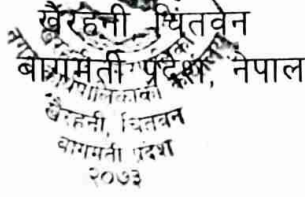 खैरहनी चितवन
बागमती प्रदेश, नेपाल
खैरहनी, चितवन
बागमती प्रदेश
२०७३